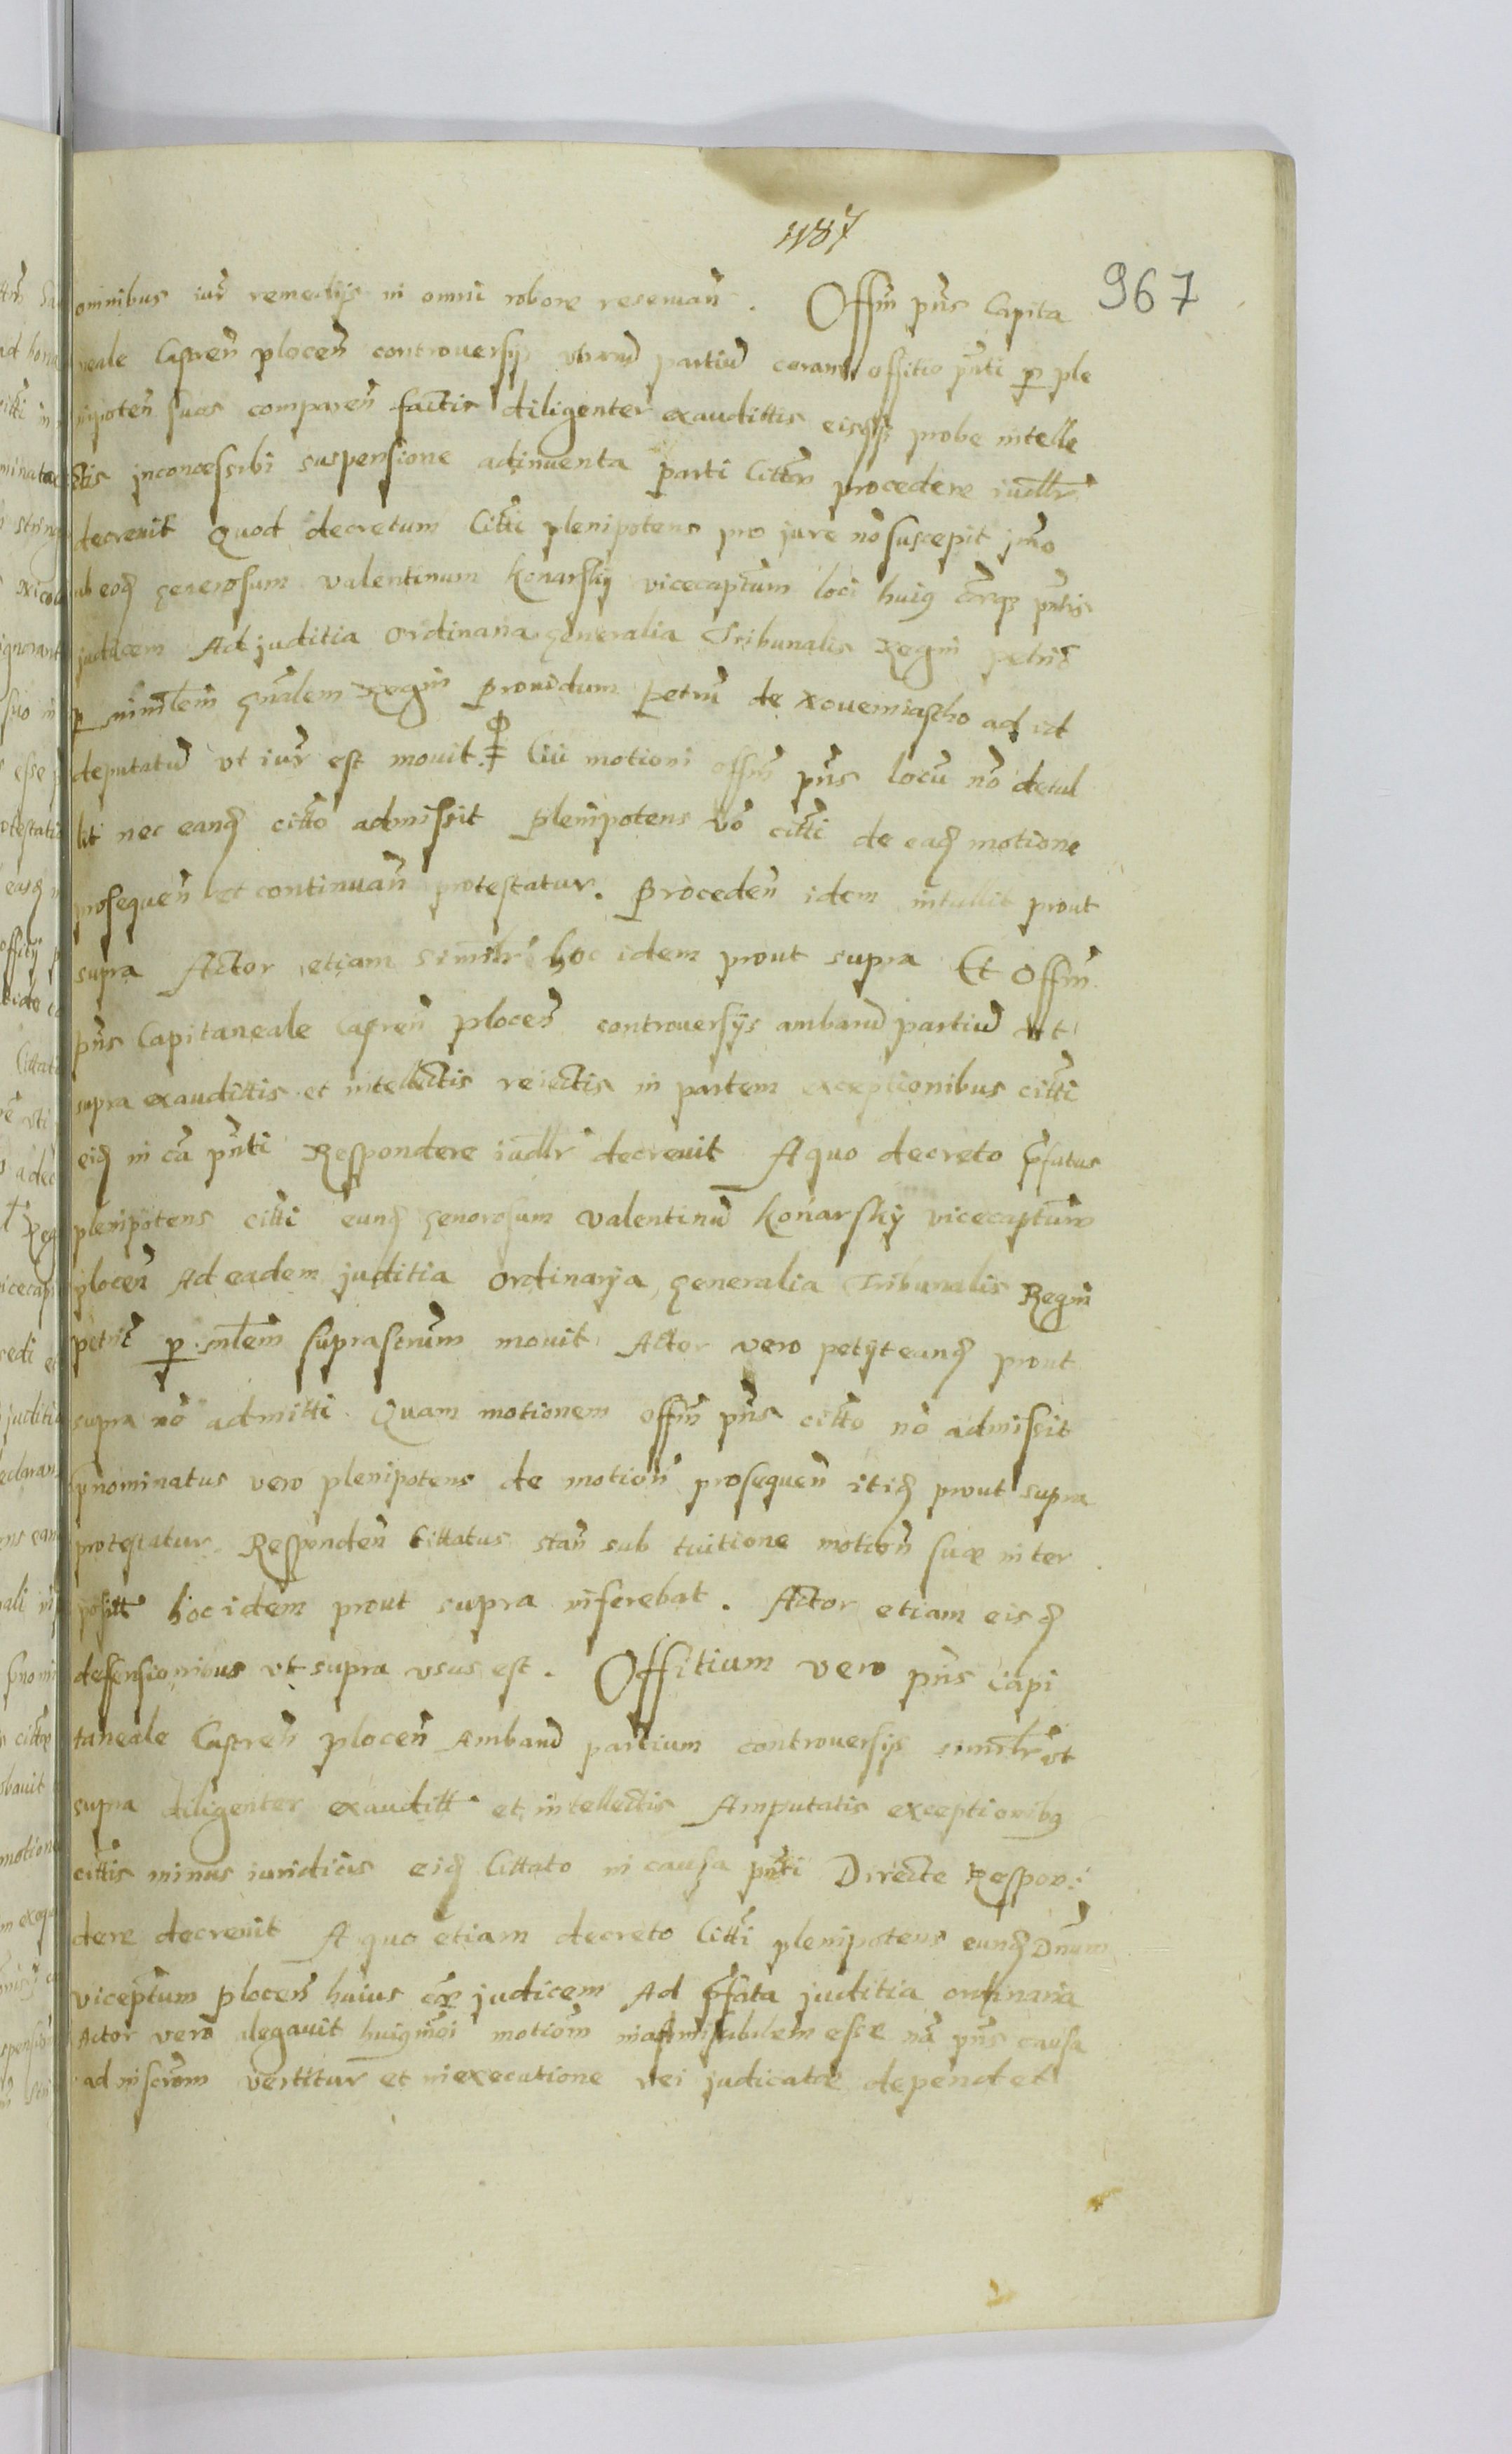 1187
967
omnibus iur̃ remedijs in omni robore reseruañ. Offm̃ pñs Capita
neale Castreñ ploceñ controuersijs partiũ coram offitio pñti p ple
nipoteñ suos compareñ factis diligenter exaudittis eisq3 probe intelle
ctis suspensione adinuenta parti Citteñ procedere iudlr̃
decreuit Quod decretum Citti plenipotens pro jure nõ suscepit jmo
ab eoq generosum valentinum Konarskij vicecaptum loci huiq pñtis
judicem Ad juditia ordinaria generalia Tribunalis Regni petric̃
p gñalem Regni Prouidum petrũ de Xouemiastho ad id
deputatũ vt iur̃ est mouit. Cui motioni offm̃ pñs locũ nõ detul
lit nec eanq citto admissit Plenipotens vo citti de eaq motione
prosequeñ et continuañ protestatur. Procedeñ idem intullit prout
supra Actor etiam similr̃ hoc idem prout supra Et Offm̃
pñs Capitaneale Castreñ ploceñ controuersijs ambarũ partiũ vt
supra exaudittis et intellectis reiectis in partem exceptionibus citti
eiq in cã pñti Respondere iudlr̃ decreuit A quo decreto pfatus
plenipotens citti eunq generosum valentinũ Konarskij vicecaptum
ploceñ Ad eadem juditia ordinarja generalia Tribunalis Regni
petric̃ p mlem suprascrum mouit Actor vero petijt eanq prout
supra nõ admitti Quam motionem offm̃ pñs citto nõ admissit
pnominatus vero plenipotens de motioñ prosequeñ itiq prout supra
protestatur. Respondeñ Cittatus stañ sub tuitione motioñ suæ inter
positt hoc idem prout supra inferebat. Actor etiam eisq
deffensionibus vt supra vsus est. Offitium vero pñs Capi
taneale Castreñ ploceñ Ambarũ partium controuersijs similr̃ vt
supra diligenter exauditt et intellectis Amputatis exceptionibq
cittis minus iuridicis eiq Cittato in causa pñti Directe Respon:
dere decreuit A quo etiam decreto Citti plenipotens eunq Dnum
viceptum ploceñ huius cæ judicem Ad pfata juditia ordinaria
Actor vero alegauit huiqmõi motiom inadmissibilem esse nã pñs causa
ad inscrom vertitur et in executione rei judicatæ dependet